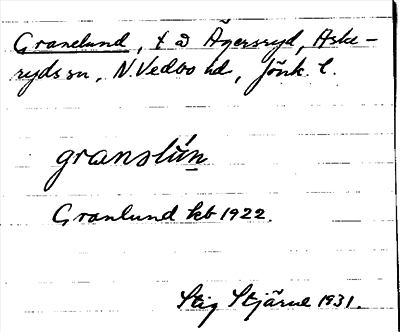 Granelund, t a Ågersryd, Aske-
ryds sn, N. Vedbo hd, Jönk. l.
granslún
Granlund kb 1922.
Stig Stjärne 1931.